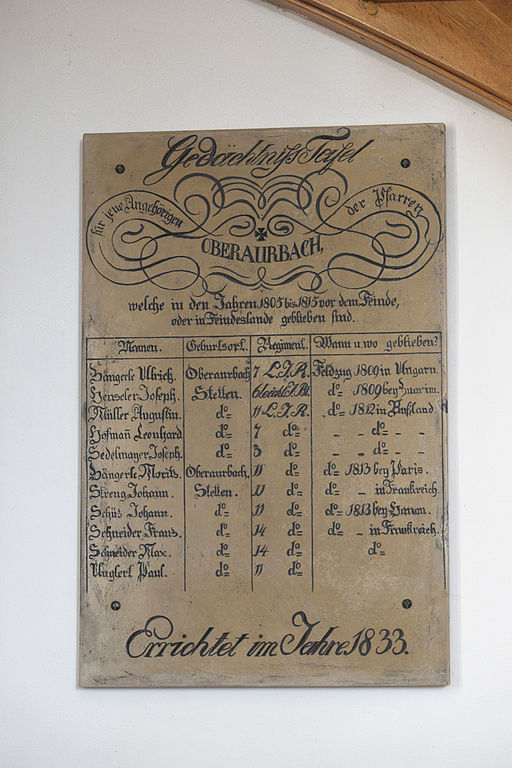 Gedächtniß Tafel
für jene Angehörigen der Pfarrey
OBERAURBACH,
welche in den Jahren 1805 bis 1815 vor dem Feinde,
oder in Feindeslande geblieben sind.
Namen. Geburtsort. Regiment. Wann u. wo geblieben?
Hängerle Ulrich. Oberaurbach 7 L.I.R. Feldzug 1809 in Ungarn.
Henseler Joseph. Stetten. 6 leicht I.Bt. do= 1809 bey Znaim.
Müller Augustin. do= 11 L.I.R. do= 1812 in Rußland.
Hofmañ Leonhard do= 7 do= - - do= - -
Sedelmayer Joseph. do= 3 do= - - do= - -
Hängerle Moritz. Oberaurbach. 11 do= do= 1813 bey Paris.
Streng Johann. Stetten. 11 do= do= - in Frankreich.
Schüs Johann. do= 11 do= do= 1813 bey Hanau.
Schneider Franz. do= 14 do= do= - in Frankreich.
Schneider Max. do= 14 do= do=
Unglert Paul. do= 11 do=
Errichtet im Jahre 1833.